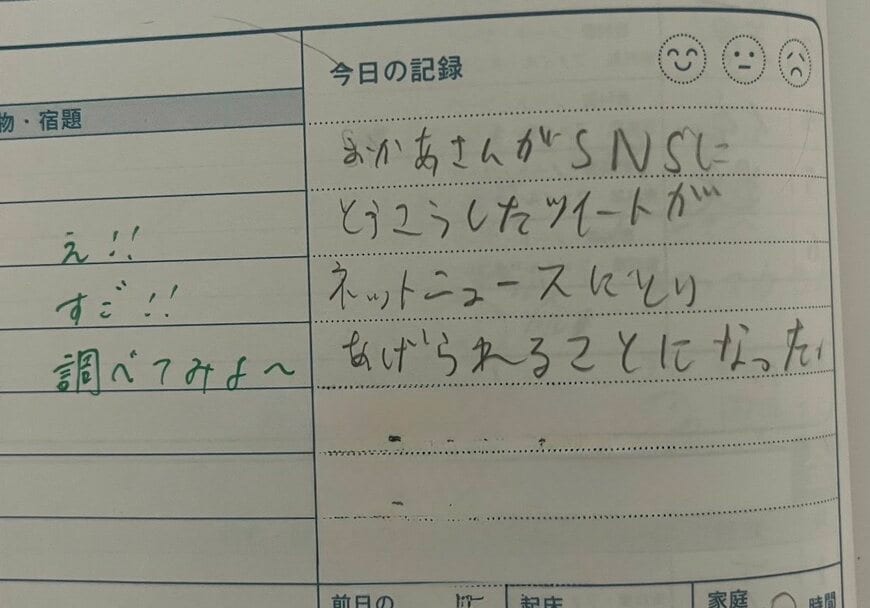 今日の記録
物・宿題
おかあさんがSNSに
とうこうしたツイートが
ネットニュースにとり
あげられることになった。
え!!
すご!!
調べてみよ〜
前日の
起床
家庭
時間